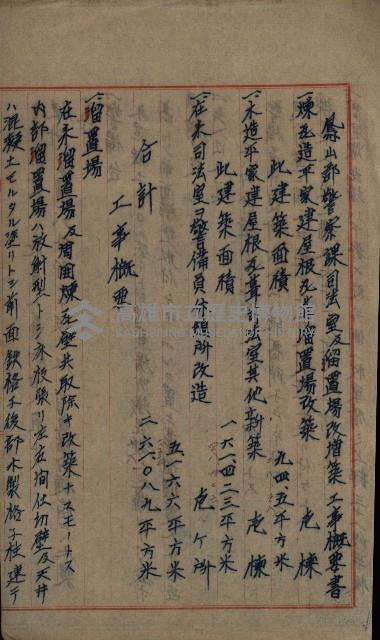 鳳山郡警察課司法室及留置場改増築工事概要書
一、煉瓦造平家建屋根瓦葺留置場改築 壱棟
此建築面積 九四.五平方米
一、木造平家建屋根瓦葺司法室其他新築 壱棟
此建築面積 一六一.四二三平方米
一、在来司法室ヲ警備員休憩所改造 壱ヶ所
五.一六六平方米
合計 二六一.〇八九平方米
工事概要
一、留置場
在来留置場及周囲煉瓦塀共取除キ改築ナスモートス
内部留置場ハ放射型トシ木板張リ左右間仕切壁及天井
ハ混凝土モルタル塗リトシ前面鉄格子後部木製格子柱建テ
高雄市立歷史博物館
KAOHSIUNG MUSEUM OF HISTORY